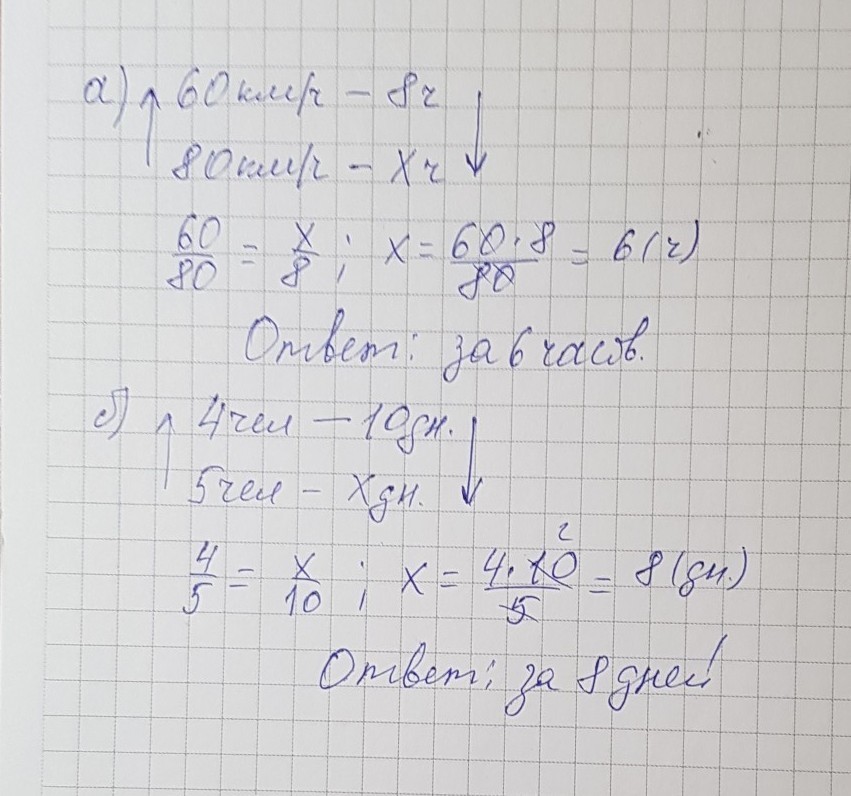 а) 60 км/ч - 8 ч
80 км/ч - x ч
60/80 = x/8 ; x = 60·8/80 = 6 (ч)
Ответ: за 6 часов.
б) 4 чел - 10 дн.
5 чел - x дн.
4/5 = x/10 ; x = 4·10/5 = 8 (дн.)
2
Ответ: за 8 дней